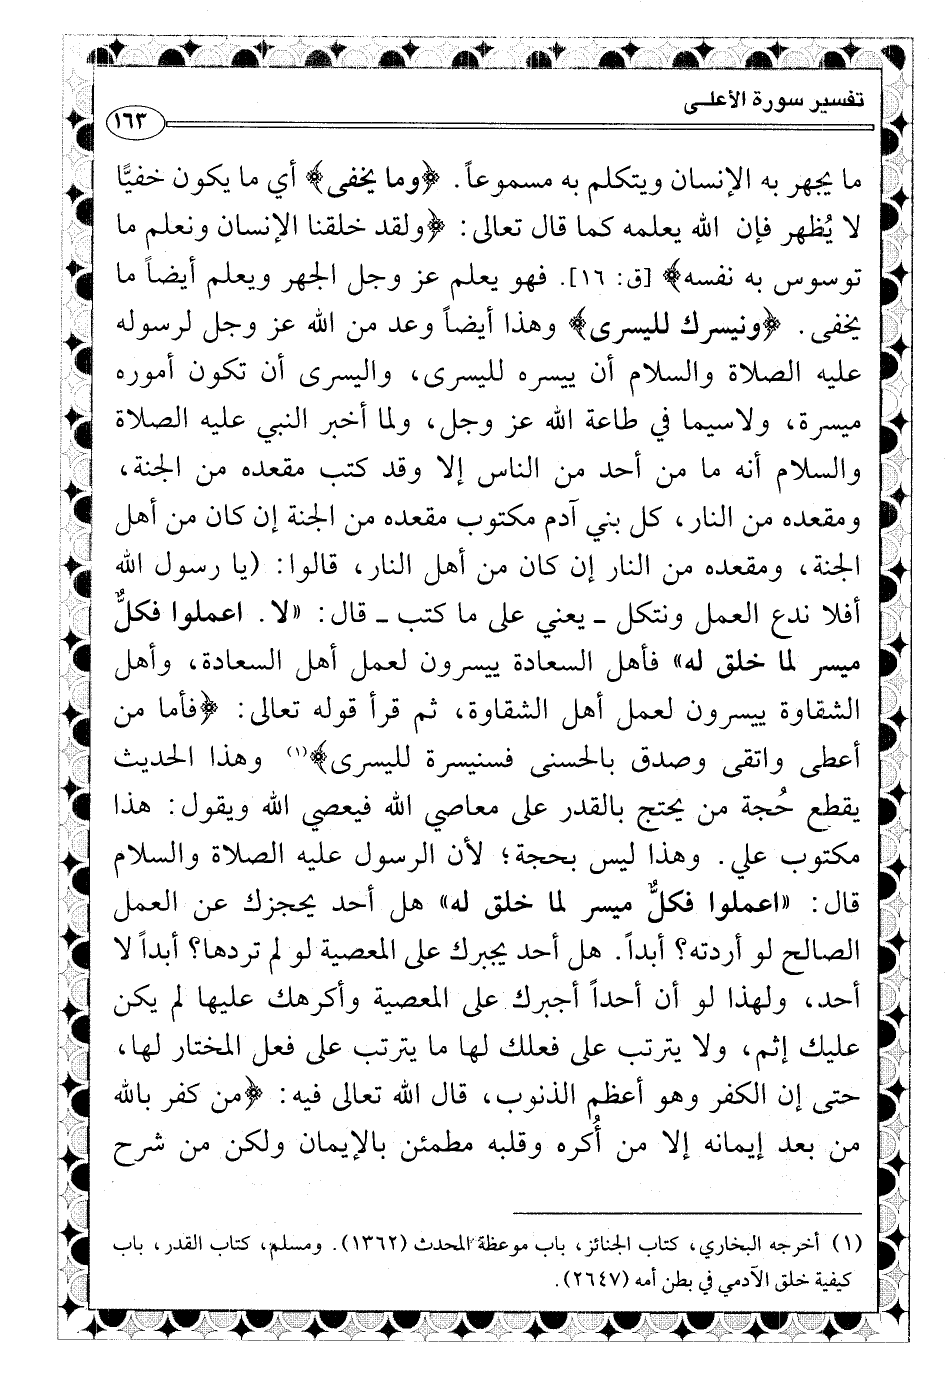 تفسير سورة الأعلى
١٦٣
ما يجهر به الإنسان ويتكلم به مسموعاً. ﴿وما يخفى﴾ أي ما يكون خفيًّا
لا يُظهر فإن الله يعلمه كما قال تعالى: ﴿ولقد خلقنا الإنسان ونعلم ما
توسوس به نفسه﴾ [ق: ١٦]. فهو يعلم عز وجل الجهر ويعلم أيضاً ما
يخفى. ﴿ونيسرك لليسرى﴾ وهذا أيضاً وعد من الله عز وجل لرسوله
عليه الصلاة والسلام أن ييسره لليسرى، واليسرى أن تكون أموره
ميسرة، ولاسيما في طاعة الله عز وجل، ولما أخبر النبي عليه الصلاة
والسلام أنه ما من أحد من الناس إلا وقد كتب مقعده من الجنة،
ومقعده من النار، كل بني آدم مكتوب مقعده من الجنة إن كان من أهل
الجنة، ومقعده من النار إن كان من أهل النار، قالوا: (يا رسول الله
أفلا ندع العمل ونتكل ـ يعني على ما كتب ـ قال: «لا. اعملوا فكلٌّ
ميسر لما خلق له» فأهل السعادة ييسرون لعمل أهل السعادة، وأهل
الشقاوة ييسرون لعمل أهل الشقاوة، ثم قرأ قوله تعالى: ﴿فأما من
أعطى واتقى وصدق بالحسنى فسنيسرة لليسرى﴾(١) وهذا الحديث
يقطع حُجة من يحتج بالقدر على معاصي الله فيعصي الله ويقول: هذا
مكتوب علي. وهذا ليس بحجة؛ لأن الرسول عليه الصلاة والسلام
قال: «اعملوا فكلٌّ ميسر لما خلق له» هل أحد يحجزك عن العمل
الصالح لو أردته؟ أبداً. هل أحد يجبرك على المعصية لو لم تردها؟ أبداً لا
أحد، ولهذا لو أن أحداً أجبرك على المعصية وأكرهك عليها لم يكن
عليك إثم، ولا يترتب على فعلك لها ما يترتب على فعل المختار لها،
حتى إن الكفر وهو أعظم الذنوب، قال الله تعالى فيه: ﴿من كفر بالله
من بعد إيمانه إلا من أُكره وقلبه مطمئن بالإيمان ولكن من شرح
(١) أخرجه البخاري، كتاب الجنائز، باب موعظة المحدث (١٣٦٢). ومسلم، كتاب القدر، باب
كيفية خلق الآدمي في بطن أمه (٢٦٤٧).